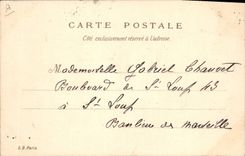 CARTE POSTALE
Côté exclusivement réservé à l'adresse.
Mademoiselle Gabriel Chauvet
Boulevard de St Loup N3
à St Loup
Banlieue de Marseille
S.B. Paris